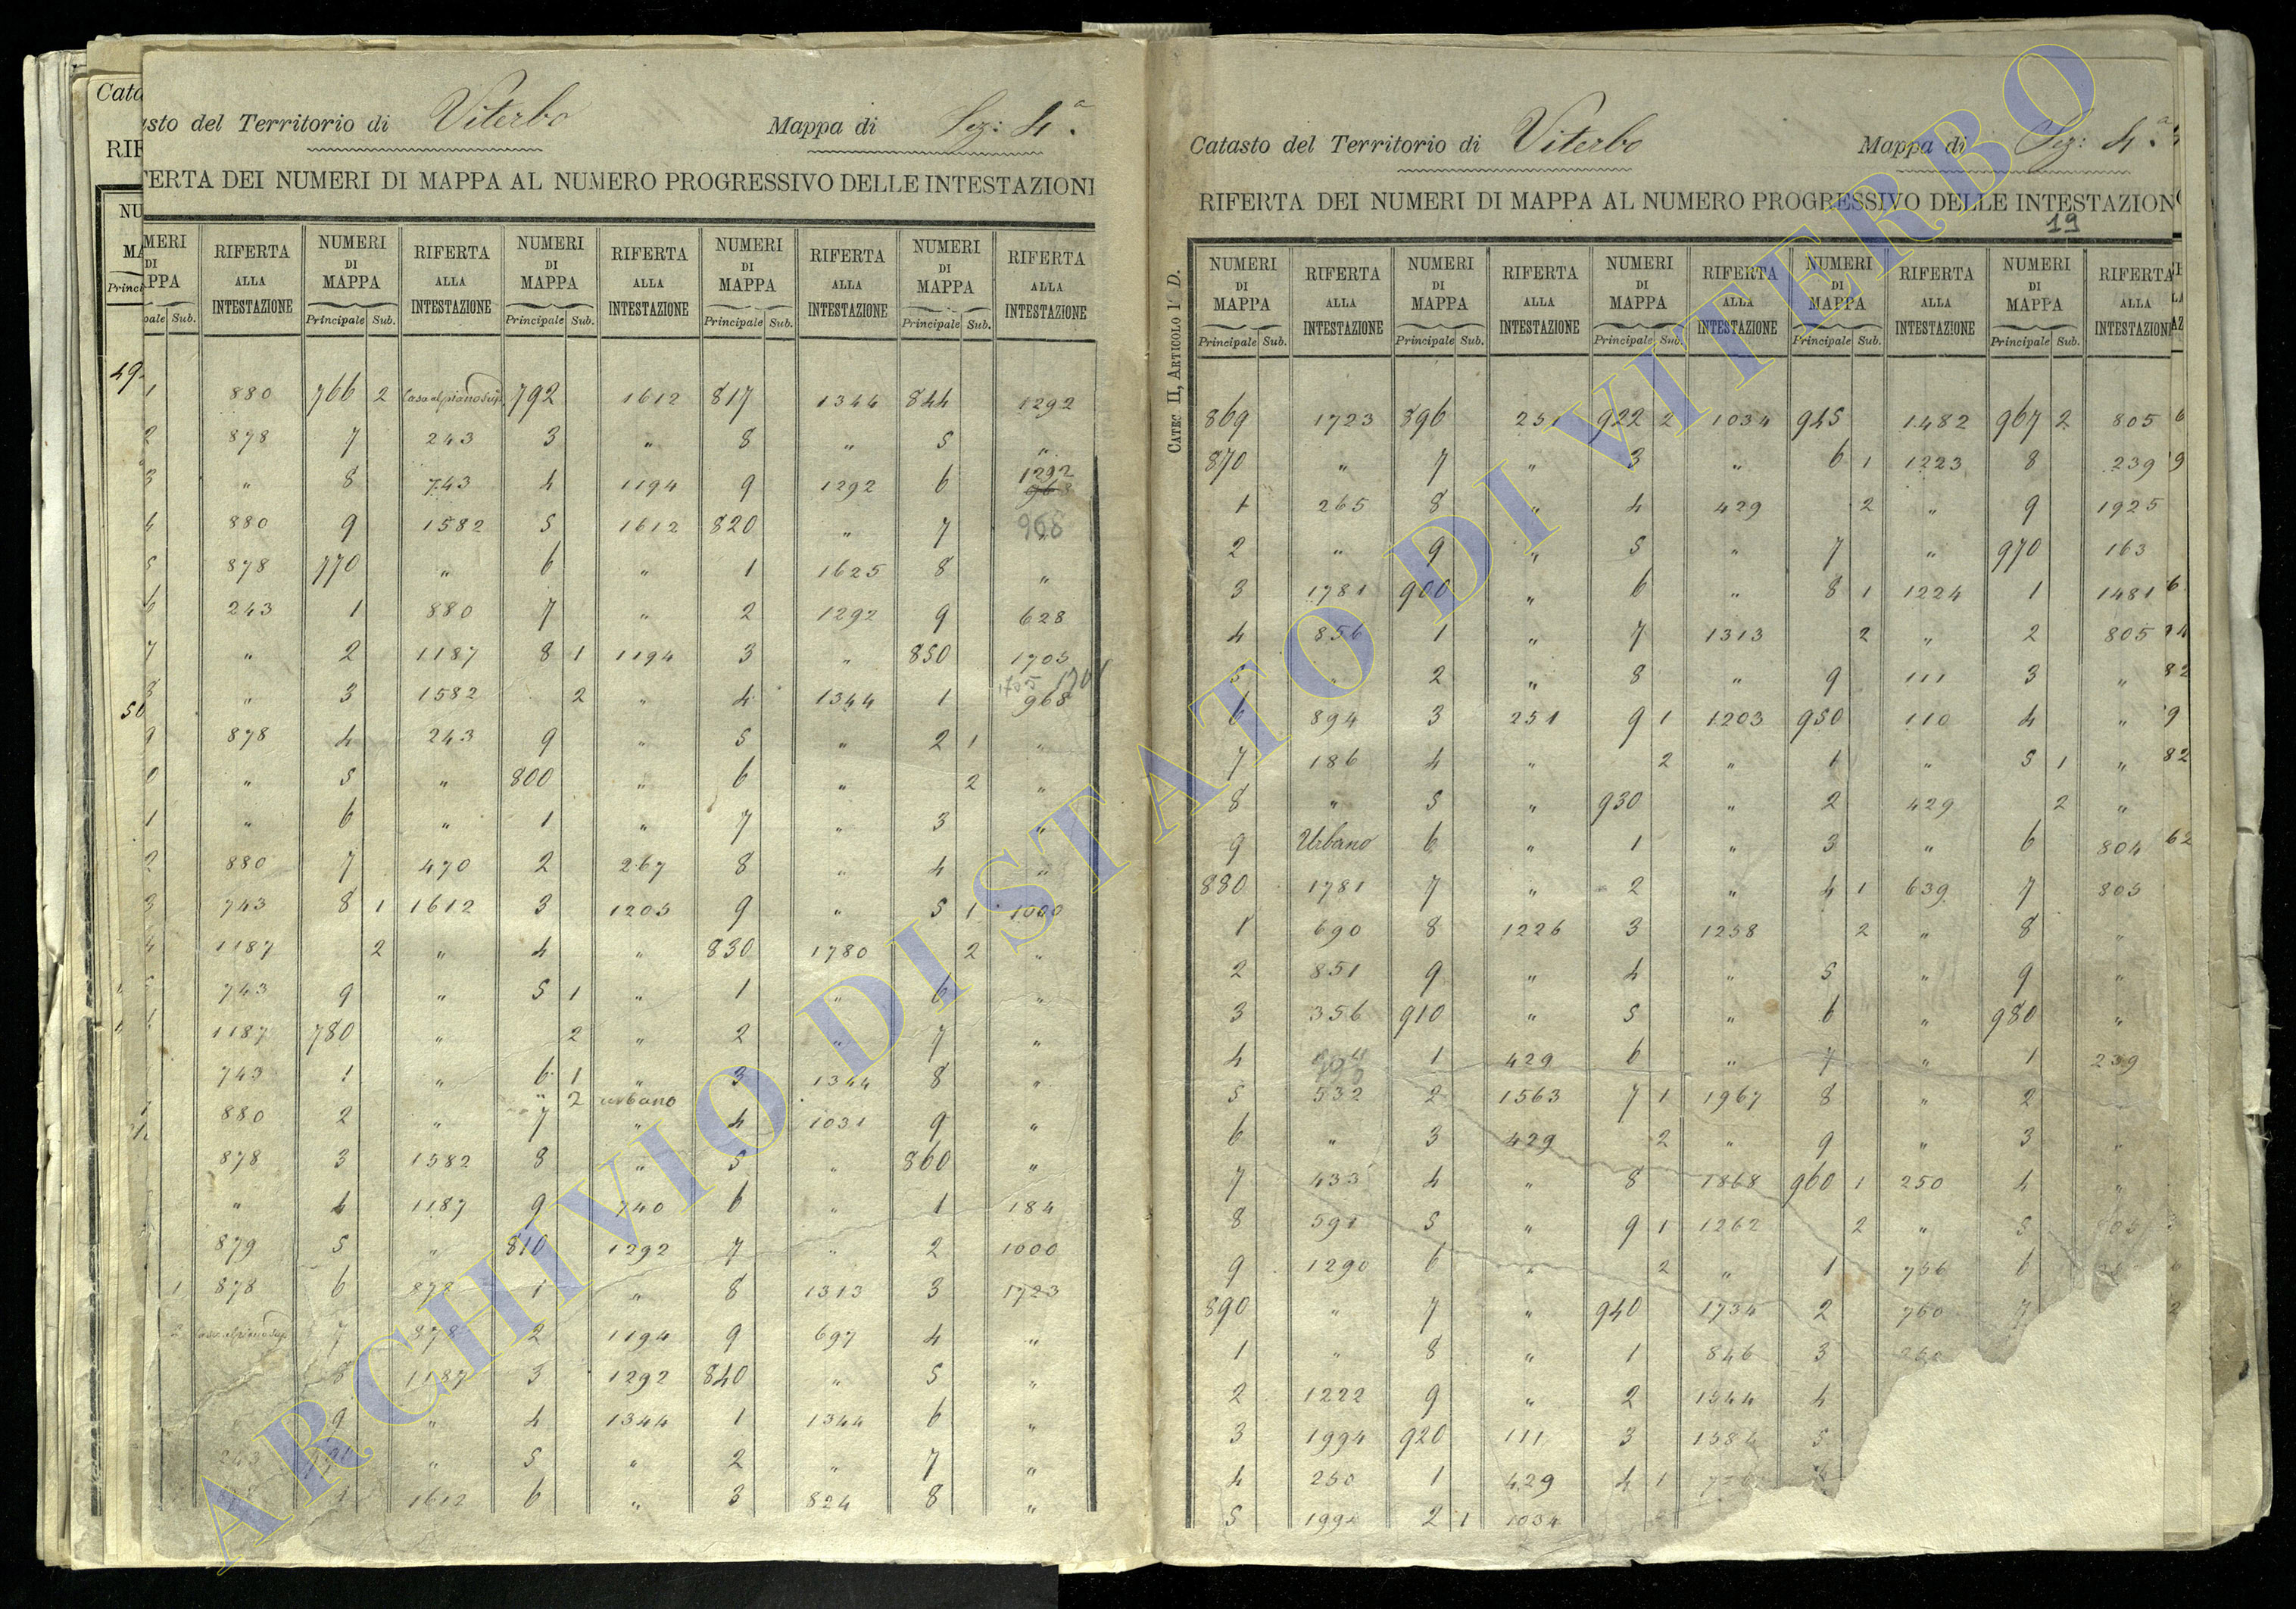 Catasto del Territorio di Viterbo Mappa di Sez: 4.a
RIFERTA DEI NUMERI DI MAPPA AL NUMERO PROGRESSIVO DELLE INTESTAZIONI
NUMERI DI MAPPA RIFERTA ALLA INTESTAZIONE NUMERI DI MAPPA RIFERTA ALLA INTESTAZIONE NUMERI DI MAPPA RIFERTA ALLA INTESTAZIONE NUMERI DI MAPPA RIFERTA ALLA INTESTAZIONE NUMERI DI MAPPA RIFERTA ALLA INTESTAZIONE
Sub. Principale Sub. Principale Sub. Principale Sub. Principale Sub.
1 880 766 2 792 1612 817 1344 844 1292
2 878 7 243 3 " 8 " 5 "
3 " 8 743 4 1194 9 1292 6 1292
4 880 9 1582 5 1612 820 " 7 968
5 878 770 " 6 " 1 1625 8 "
6 243 1 880 7 " 2 1292 9 628
7 " 2 1187 8 1 1194 3 " 850 1705
8 " 3 1582 2 " 4 1344 1 968
9 878 4 243 9 " 5 " 2 1 "
0 " 5 " 800 " 6 " 2 "
1 " 6 " 1 " 7 " 3 "
2 880 7 470 2 267 8 " 4 "
3 743 8 1 1612 3 1205 9 " 5 1 1000
4 1187 2 " 4 " 830 1780 2 "
5 743 9 " 5 1 " 1 " 6 "
1187 780 " 2 " 2 " 7 "
743 1 " 6 1 " 3 1344 8 "
" 2 urbano
880 2 " 7 " 4 1031 9 "
878 3 1582 8 " 5 " 860 "
" 4 1187 9 740 6 " 1 184
879 5 " 810 1292 7 " 2 1000
1 878 6 878 1 " 8 1313 3 1723
2 7 878 2 1194 9 697 4 "
8 1187 3 1292 840 " 5 "
9 " 4 1344 1 1344 6 "
243 " 5 " 2 " 7 "
1 1612 6 " 3 824 8 "
Catasto del Territorio di Viterbo Mappa di Sez: 4.a
RIFERTA DEI NUMERI DI MAPPA AL NUMERO PROGRESSIVO DELLE INTESTAZION
19
CATEG II, ARTICOLO 1° D.
NUMERI DI MAPPA RIFERTA ALLA INTESTAZIONE NUMERI DI MAPPA RIFERTA ALLA INTESTAZIONE NUMERI DI MAPPA RIFERTA ALLA INTESTAZIONE NUMERI DI MAPPA RIFERTA ALLA INTESTAZIONE NUMERI DI MAPPA RIFERTA ALLA INTESTAZIONE
Principale Sub. Principale Sub. Principale Sub. Principale Sub. Principale Sub.
869 1723 896 251 922 2 1034 945 1482 967 2 805
870 " 7 " 3 " 6 1 1223 8 239
1 265 8 " 4 429 2 " 9 1925
2 " 9 " 5 " 7 " 970 163
3 1781 900 " 6 " 8 1 1224 1 1481
4 856 1 " 7 1313 2 " 2 805
5 " 2 " 8 " 9 111 3 "
6 894 3 251 9 1 1203 950 110 4 "
7 186 4 " 2 " 1 " 5 1 "
8 " 5 " 930 " 2 429 2 "
9 Urbano 6 " 1 " 3 " 6 804
880 1781 7 " 2 " 4 1 639 7 805
1 690 8 1226 3 1258 2 " 8 "
2 851 9 " 4 " 5 " 9 "
3 356 910 " 5 " 6 " 980 "
4 1 429 6 " 7 " 1 239
5 532 2 1563 7 1 1967 8 " 2
6 " 3 429 2 " 9 " 3 "
7 433 4 " 8 1868 960 1 250 4 "
8 591 5 " 9 1 1262 2 " 5
9 1290 6 " 2 " 1 756 6
890 " 7 " 940 1734 2 760 7
1 " 8 " 1 846 3
2 1222 9 " 2 1544 4
3 1994 920 111 3 5
4 250 1 429 4 1
5 2 1 1034
ARCHIVIO DI STATO DI VITERBO